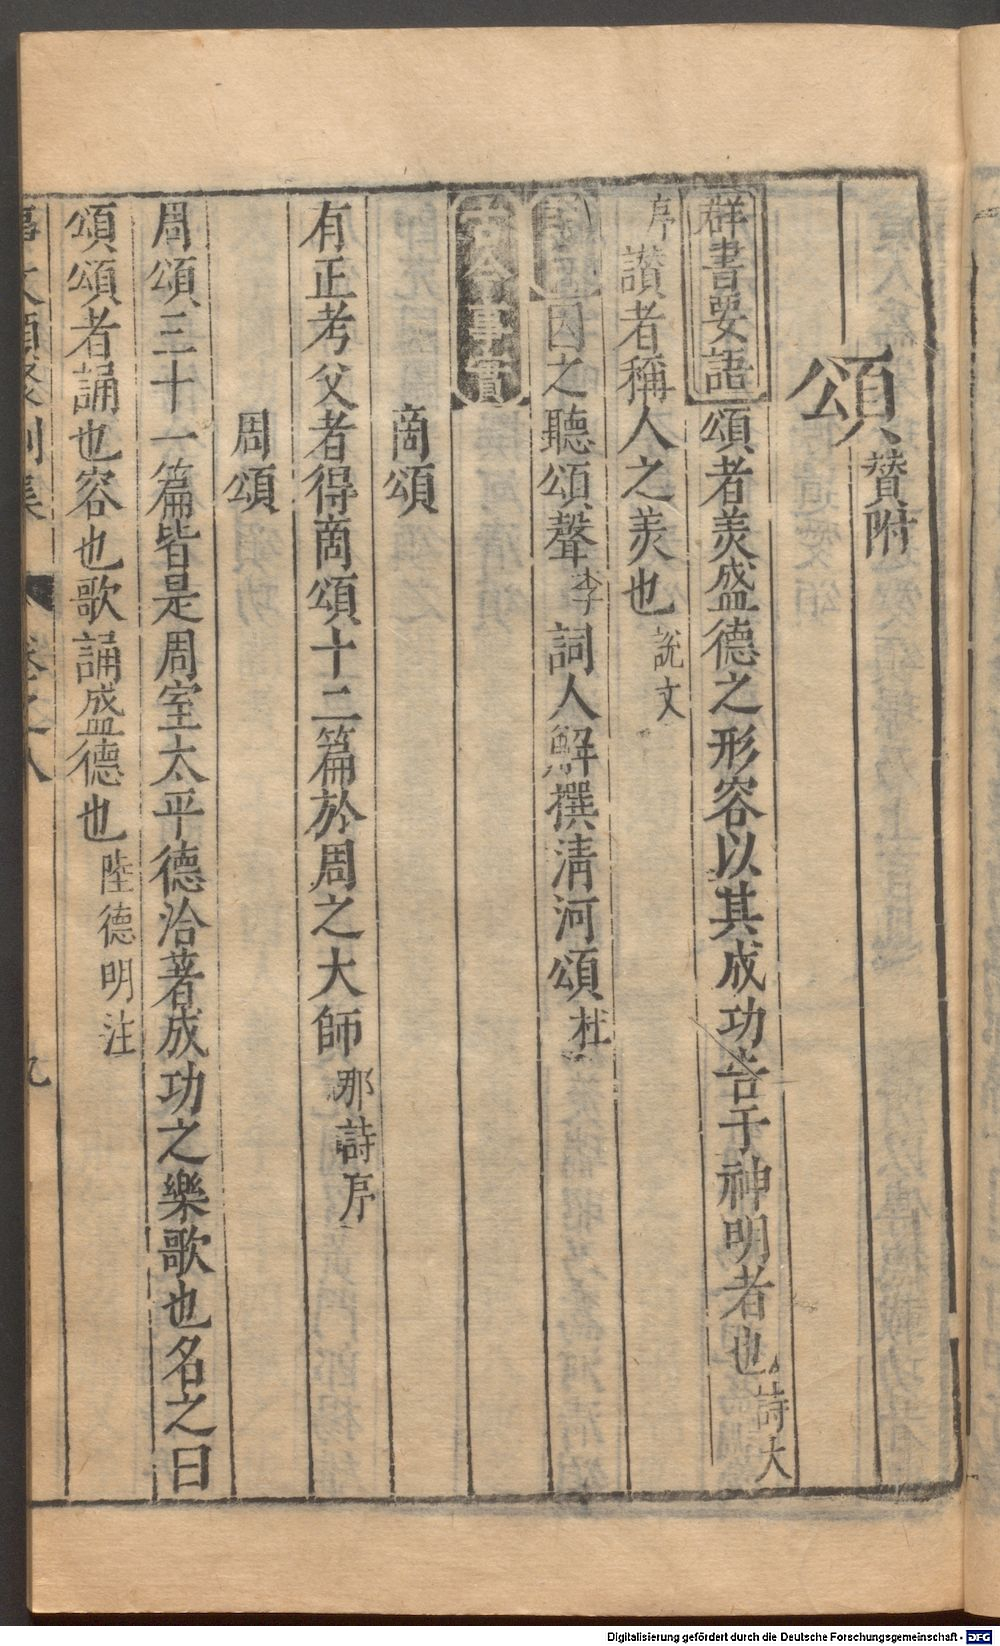 頌贊附
群書要語頌者羙盛德之形容以其成功告于神明者也詩大
序讃者稱人之羙也說文
因之聽頌聲李詞人解撰清河頌杜
古今事實
商頌
有正考父者得商頌十二篇於周之大師那詩序
周頌
周頌三十一篇皆是周室太平德洽著成功之樂歌也名之曰
頌頌者誦也容也歌誦盛德也陸德明注
事文類聚別集 卷之八 九
Digitalisierung gefördert durch die Deutsche Forschungsgemeinschaft - DFG